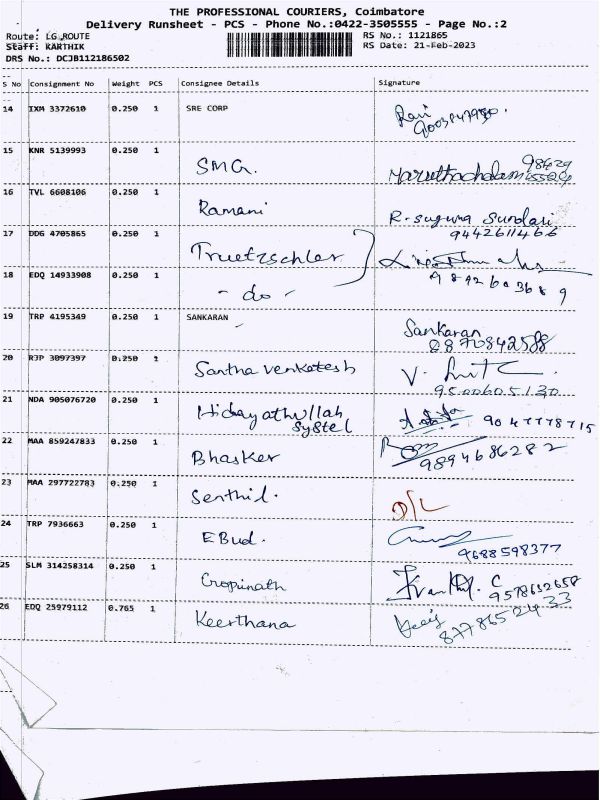 THE PROFESSIONAL COURIERS, Coimbatore
Delivery Runsheet - PCS - Phone No.:0422-3505555 - Page No.:2
Route: LG ROUTE RS No.: 1121865
Staff: KARTHIK RS Date: 21-Feb-2023
DRS No.: DCJB112186502
S No Consignment No Weight PCS Consignee Details Signature
14 IXM 3372610 0.250 1 SRE CORP Ravi
15 KNR 5139993 0.250 1 SMG. Maruthachalam 98429
16 TVL 6608106 0.250 1 Ramani R. Suguna Sundari
9442611466
17 DDG 4705865 0.250 1 Truetzschler
18 EDQ 14933908 0.250 1 - do - 9842603689
19 TRP 4195349 0.250 1 SANKARAN Sankaran
8870842588
20 RJP 3097397 0.250 1 Santha Venkatesh V.
9500605130
21 NDA 905076720 0.250 1 Hidayathullah 9047778715
Systel
22 MAA 859247833 0.250 1 Bhasker 9894686282
23 MAA 297722783 0.250 1 Senthil. D/L
24 TRP 7936663 0.250 1 EBud. 9688598377
25 SLM 314258314 0.250 1 Gopinath 9578632658
26 EDQ 25979112 0.765 1 Keerthana 8778652433